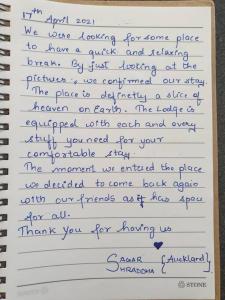 17th April 2021
We were looking for some place
to have a quick and relaxing
break. By just looking at the
pictures, we confirmed our stay.
The place is definetly a slice of
heaven on Earth. The Lodge is
equipped with each and every
stuff you need for your
comfortable stay.
The moment we entered the place
we decided to come back again
with our friends as it has space
for all.
Thank You for having us
SAGAR
SHRADDHA {Auckland}
STONE